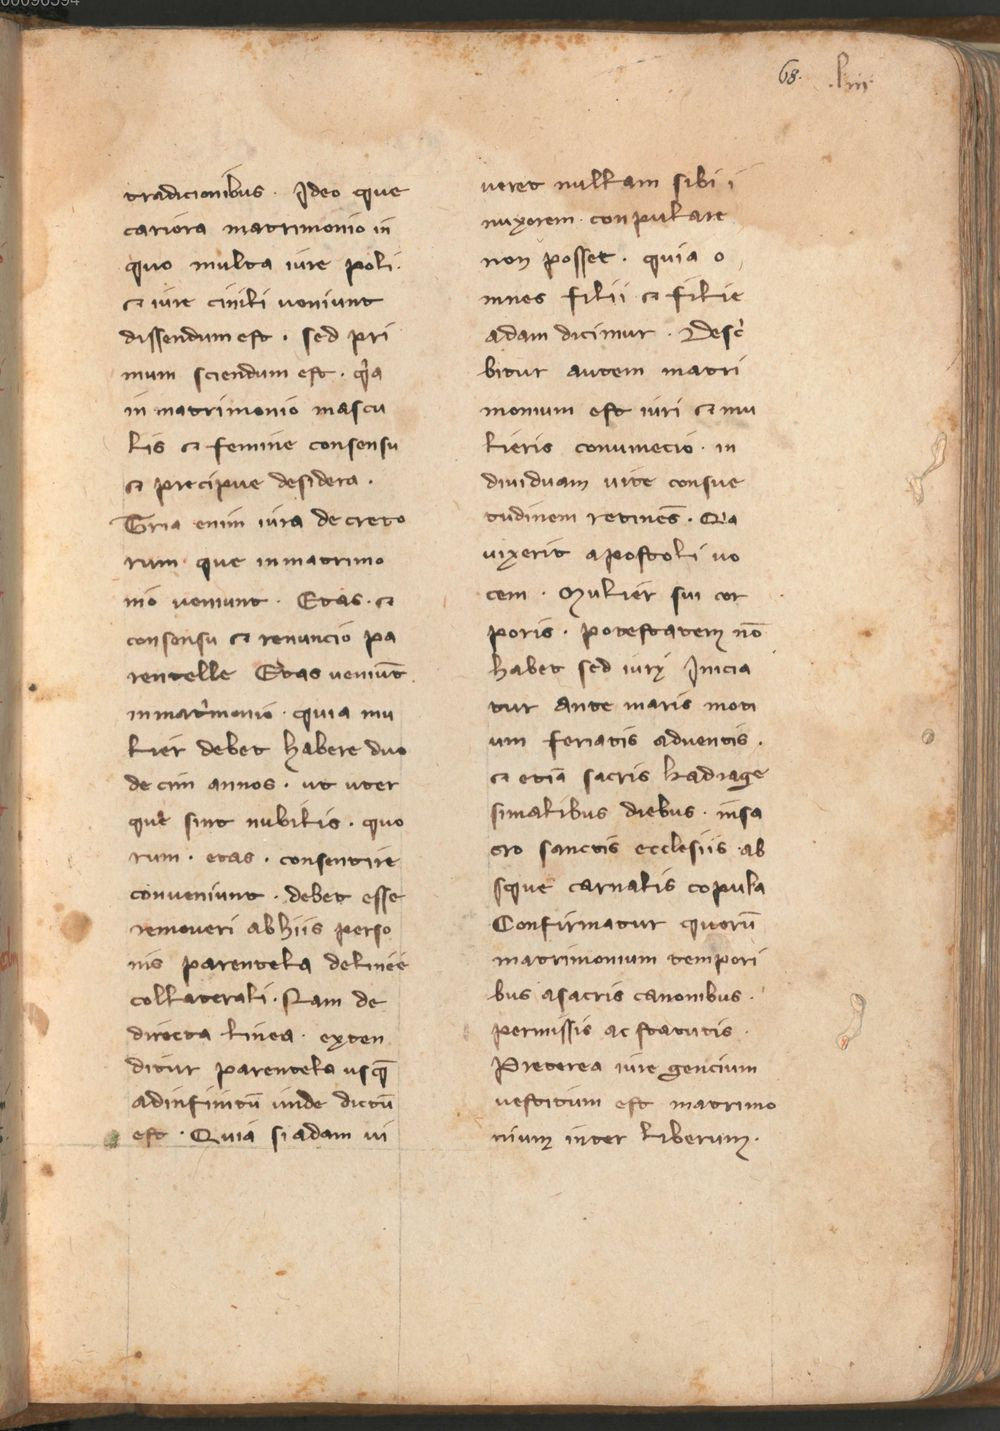 00096394
68. liiij
tradicionibus · Ideo que
cariora matrimonio in
quo multa iure poli ·
et iure ciuili ueniunt
dissendum est · sed pri
mum sciendum est · qa
in matrimonio mascu
lis et femine consensu
et precipue desidera ·
Tria enim iura decreto
rum que in matrimo
nio ueniunt · Etas · et
consensu et renuncio pa
rentelle Etas veniūt
in matrimonio · quia mu
lier debet habere duo
decim annos · ut uter
que sint nubilis · quo
rum · etas · consentire
conveniunt · debet esse
remoueri ab hiis perso
nis parentela de linee
collaterali · Nam de
directa linea · exten
ditur parentela usq̄
ad infinitū unde dictū
est · Quia si adam ui
ueret nullam sibi i
nuxorem · conpulare
non posset · quia o
mnes filii et filie
adam dicimur · Desc̄
bitur autem matri
monium est uiri et mu
lieris conuinecio · in
diuiduam uite consue
tudinem retinēs · Qa
vixerit apostoli uo
cem · Mulier sui cor
poris · potestatem nō
habet sed iurȳ Inicia
tur ante maris moti
um feriatis aduentis ·
et etiā sacris kadrage
simalibus diebus · in sa
cro sanctis ecclesiis · ab
sque carnalis copula
Confirmatur quorū
matrimonium tempori
bus a sacris canonibus ·
permissis ac statutis ·
Preterea iure gencium
uestitum est matrimo
nium inter liberum ·